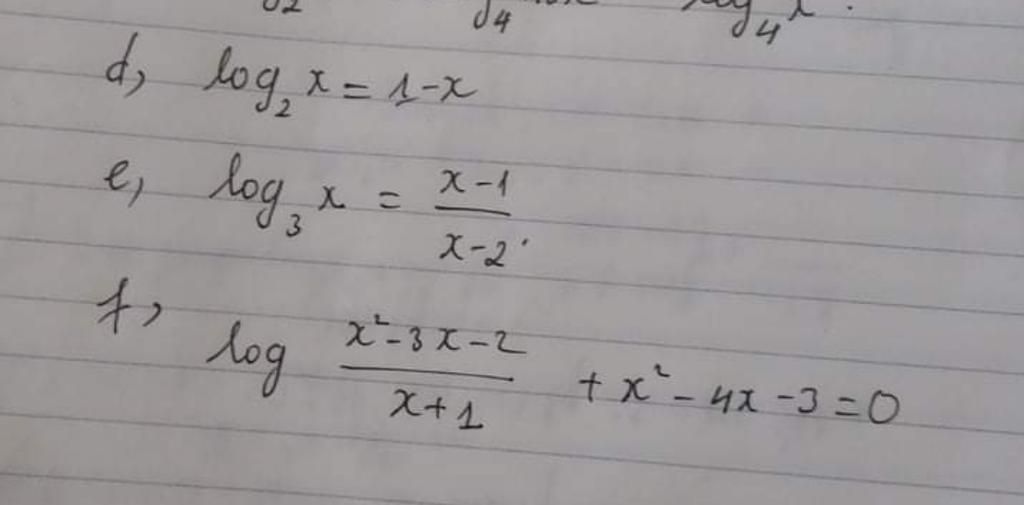 d, log₂ x = 1-x
e, log₃ x = \frac{x-1}{x-2}.
f, log \frac{x²-3x-2}{x+1} + x² - 4x - 3 = 0